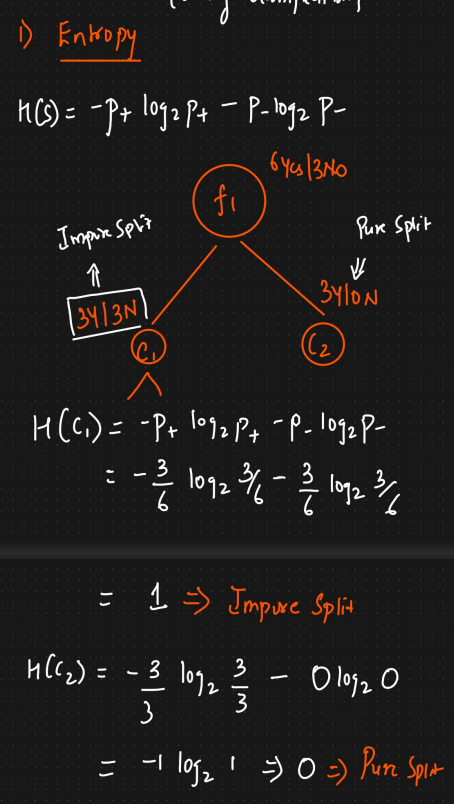 1) Entropy
H(S) = -P+ log2 P+ - P- log2 P-
6 Yes | 3 No
f1
Impure Split
Pure Split
3Y | 3N
3Y | 0N
C1
C2
H(C1) = -P+ log2 P+ - P- log2 P-
= - 3/6 log2 3/6 - 3/6 log2 3/6
= 1 ⇒ Impure Split
H(C2) = - 3/3 log2 3/3 - 0 log2 0
= -1 log2 1 ⇒ 0 ⇒ Pure Split